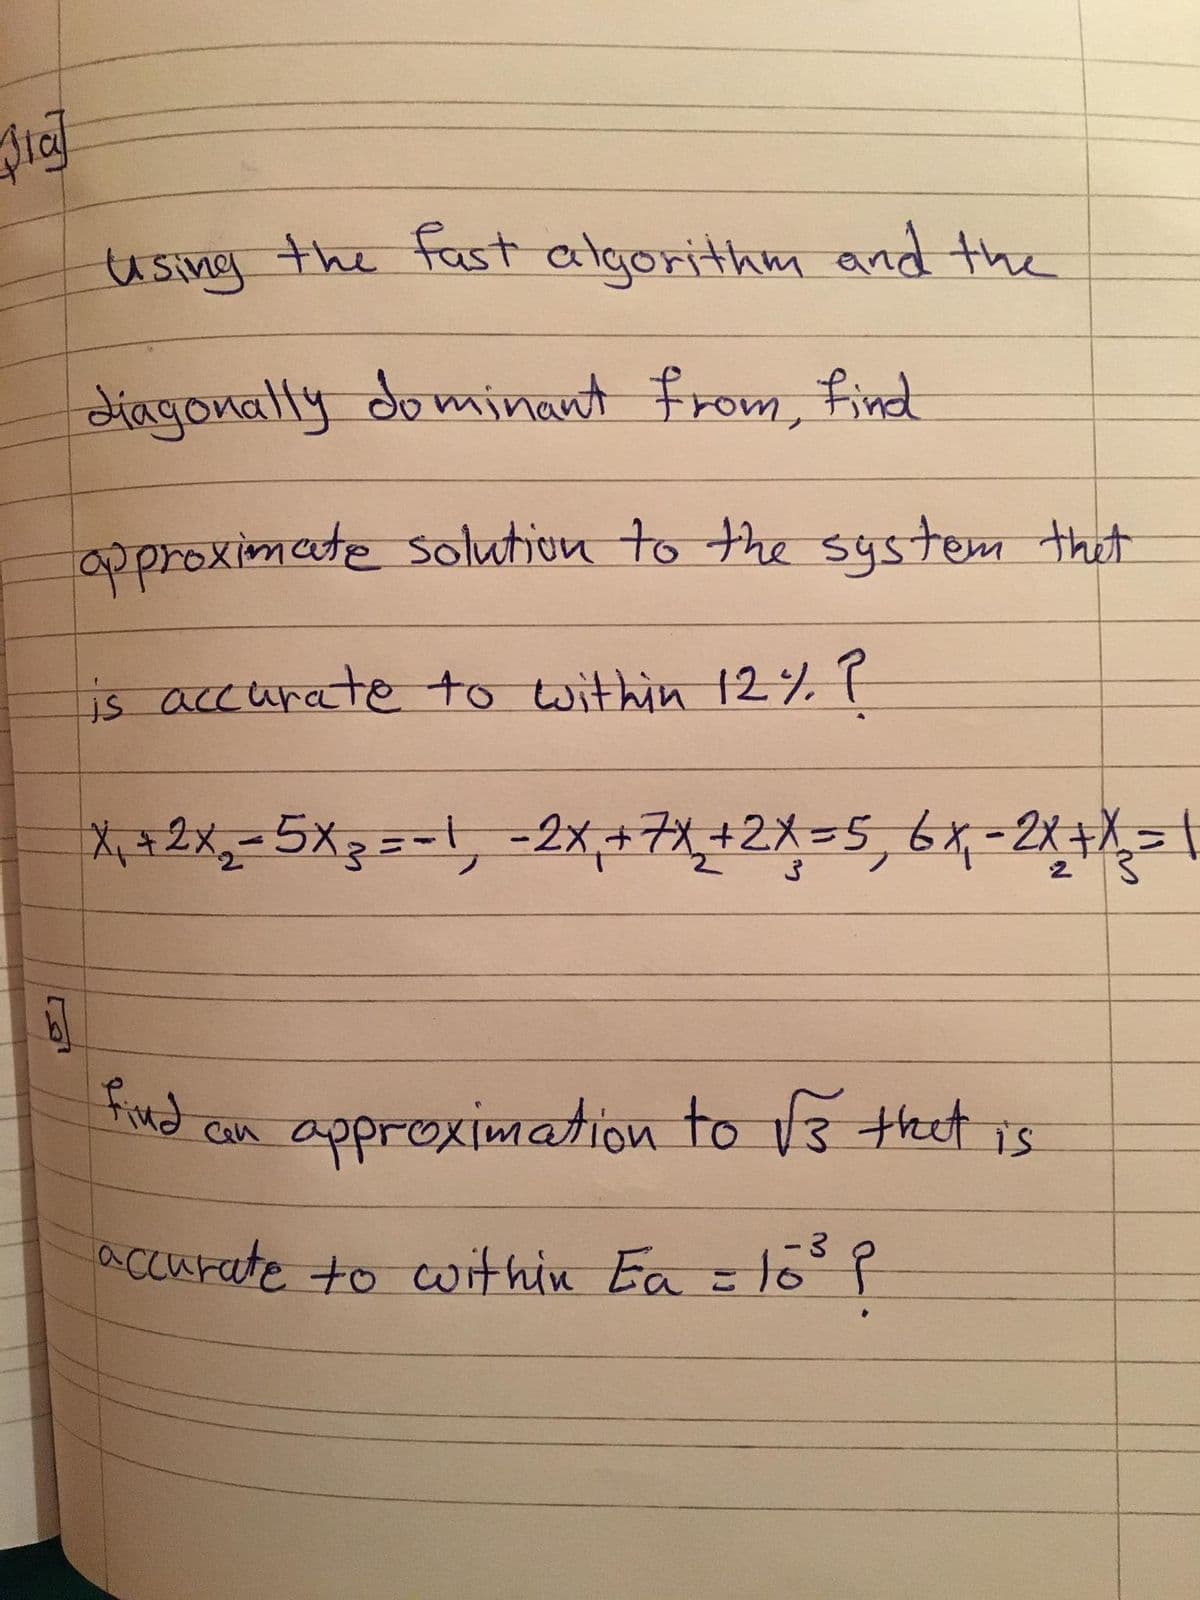 Q1a]
using the fast algorithm and the
diagonally dominant from, find
approximate solution to the system thet
is accurate to within 12%?
X₁+2x₂-5x₃=-1, -2x₁+7x₂+2x₃=5, 6x₁-2x₂+x₃=1
b]
find an approximation to √3 thet is
accurate to within Ea = 10⁻³?